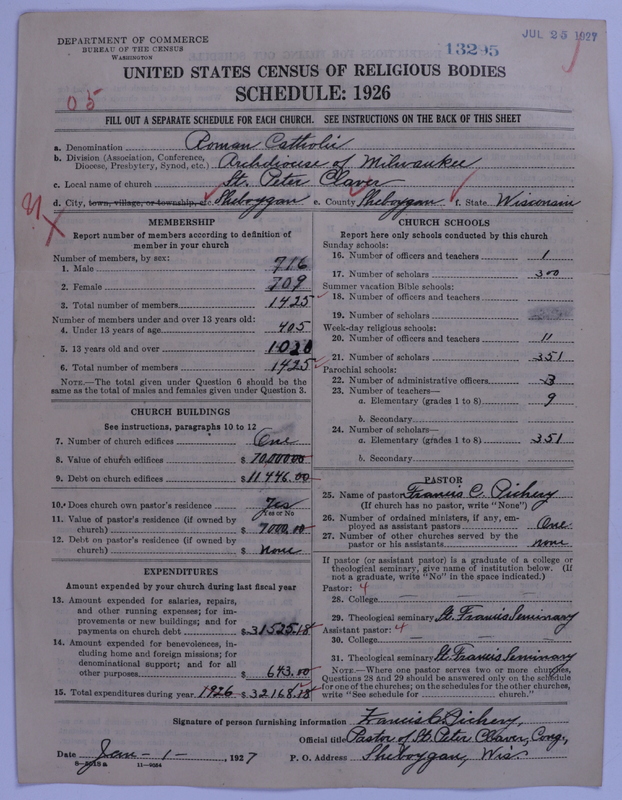 DEPARTMENT OF COMMERCE
BUREAU OF THE CENSUS
WASHINGTON
13295
JUL 25 1927
05
UNITED STATES CENSUS OF RELIGIOUS BODIES
SCHEDULE: 1926
FILL OUT A SEPARATE SCHEDULE FOR EACH CHURCH. SEE INSTRUCTIONS ON THE BACK OF THIS SHEET
a. Denomination Roman Catholic
b. Division (Association, Conference, Diocese, Presbytery, Synod, etc.) Archdiocese of Milwaukee
c. Local name of church St. Peter Claver
d. City, town, village, or township, etc. Sheboygan e. County Sheboygan f. State Wisconsin
MEMBERSHIP
Report number of members according to definition of
member in your church
Number of members, by sex:
1. Male 716
2. Female 709
3. Total number of members 1425
Number of members under and over 13 years old:
4. Under 13 years of age 405
5. 13 years old and over 1020
6. Total number of members 1425
NOTE.—The total given under Question 6 should be
same as the total of males and females given under Question 3.
CHURCH BUILDINGS
See instructions, paragraphs 10 to 12
7. Number of church edifices One
8. Value of church edifices $ 70,000.00
9. Debt on church edifices $ 11446.00
10. Does church own pastor's residence Yes
Yes or No
11. Value of pastor's residence (if owned by
church) $ 7000.00
12. Debt on pastor's residence (if owned by
church) $ none
EXPENDITURES
Amount expended by your church during last fiscal year
13. Amount expended for salaries, repairs,
and other running expenses; for im-
provements or new buildings; and for
payments on church debt $ 31525.18
14. Amount expended for benevolences, in-
cluding home and foreign missions; for
denominational support; and for all
other purposes $ 643.00
15. Total expenditures during year 1926 $ 32168.18
CHURCH SCHOOLS
Report here only schools conducted by this church
Sunday schools:
16. Number of officers and teachers 1
17. Number of scholars 300
Summer vacation Bible schools:
18. Number of officers and teachers
19. Number of scholars
Week-day religious schools:
20. Number of officers and teachers 11
21. Number of scholars 351
Parochial schools:
22. Number of administrative officers 3
23. Number of teachers—
a. Elementary (grades 1 to 8) 9
b. Secondary
24. Number of scholars—
a. Elementary (grades 1 to 8) 351
b. Secondary
PASTOR
25. Name of pastor Francis C.
(If church has no pastor, write "None")
26. Number of ordained ministers, if any, em-
ployed as assistant pastors One
27. Number of other churches served by the
pastor or his assistants none
If pastor (or assistant pastor) is a graduate of a college or
theological seminary, give name of institution below. (If
not a graduate, write "No" in the space indicated.)
Pastor: 4
28. College — — —
29. Theological seminary St. Francis Seminary
Assistant pastor: 4
30. College — — —
31. Theological seminary St. Francis Seminary
NOTE.—Where one pastor serves two or more churches,
Questions 28 and 29 should be answered only on the schedule
for one of the churches; on the schedules for the other churches,
write "See schedule for ............ church."
Signature of person furnishing information Francis C.
Official title Pastor of St. Peter Claver, Cong.,
Date Jan - 1 - , 1927 P. O. Address Sheboygan, Wis.
11—9054